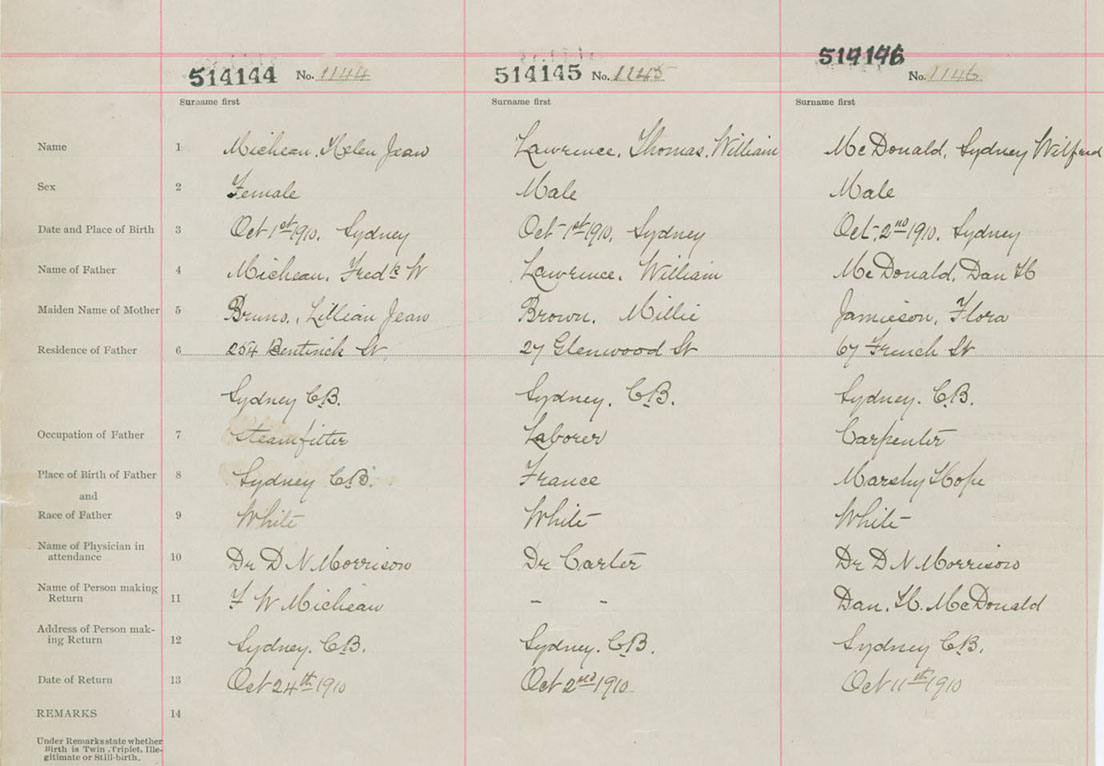 514144 No. 1144 514145 No. 1145 514146 No. 1146
Surname first Surname first Surname first
Name 1 Micheau, Helen Jean Lawrence, Thomas, William McDonald, Sydney Wilfred
Sex 2 Female Male Male
Date and Place of Birth 3 Oct 1st 1910, Sydney Oct 1st 1910, Sydney Oct. 2nd 1910, Sydney
Name of Father 4 Micheau, Fredk W Lawrence, William McDonald, Dan H
Maiden Name of Mother 5 Bruns, Lillian Jean Brown, Millie Jamieson, Flora
Residence of Father 6 254 Bentinck St 27 Glenwood St 67 French St
Sydney C.B. Sydney. C.B. Sydney. C.B.
Occupation of Father 7 Steamfitter Laborer Carpenter
Place of Birth of Father 8 Sydney C.B. France Marshy Hope
and
Race of Father 9 White White White
Name of Physician in
attendance 10 Dr D N Morrison Dr Carter Dr D N Morrison
Name of Person making
Return 11 F W Micheau - - Dan. H. McDonald
Address of Person mak-
ing Return 12 Sydney. C.B. Sydney. C.B. Sydney C.B.
Date of Return 13 Oct 24th 1910 Oct 2nd 1910 Oct 11th 1910
REMARKS 14
Under Remarks state whether
Birth is Twin, Triplet, Ille-
gitimate or Still-birth.